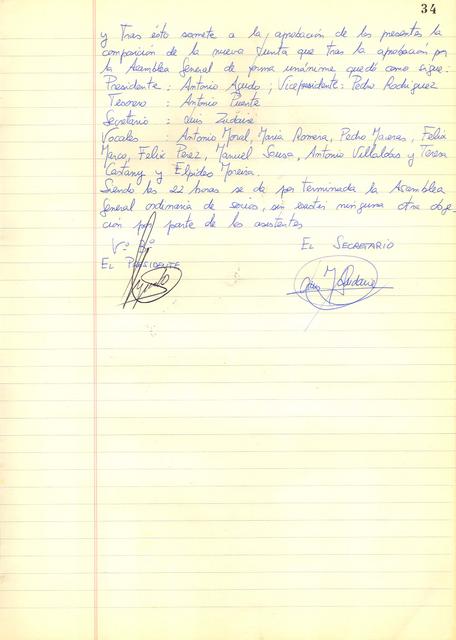 34
y Tras ésto somete a la aprobación de los presentes la
composición de la nueva Junta que tras la aprobación por
la Asamblea General de forma unánime quedó como sigue:
Presidente : Antonio Agudo ; Vicepresidente: Pedro Rodriguez
Tesorero : Antonio Puente
Secretario : Luis Zudaire
Vocales : Antonio Moral, Maria Romera, Pedro Maeras, Felix
Marco, Felix Perez, Manuel Sousa, Antonio Villaldos y Teresa
Castany y Elpidio Moreira.
Siendo las 22 horas se da por terminada la Asamblea
General ordinaria de socios, sin existir ninguna otra obje-
ción por parte de los asistentes
Vº Bº
EL SECRETARIO
EL PRESIDENTE